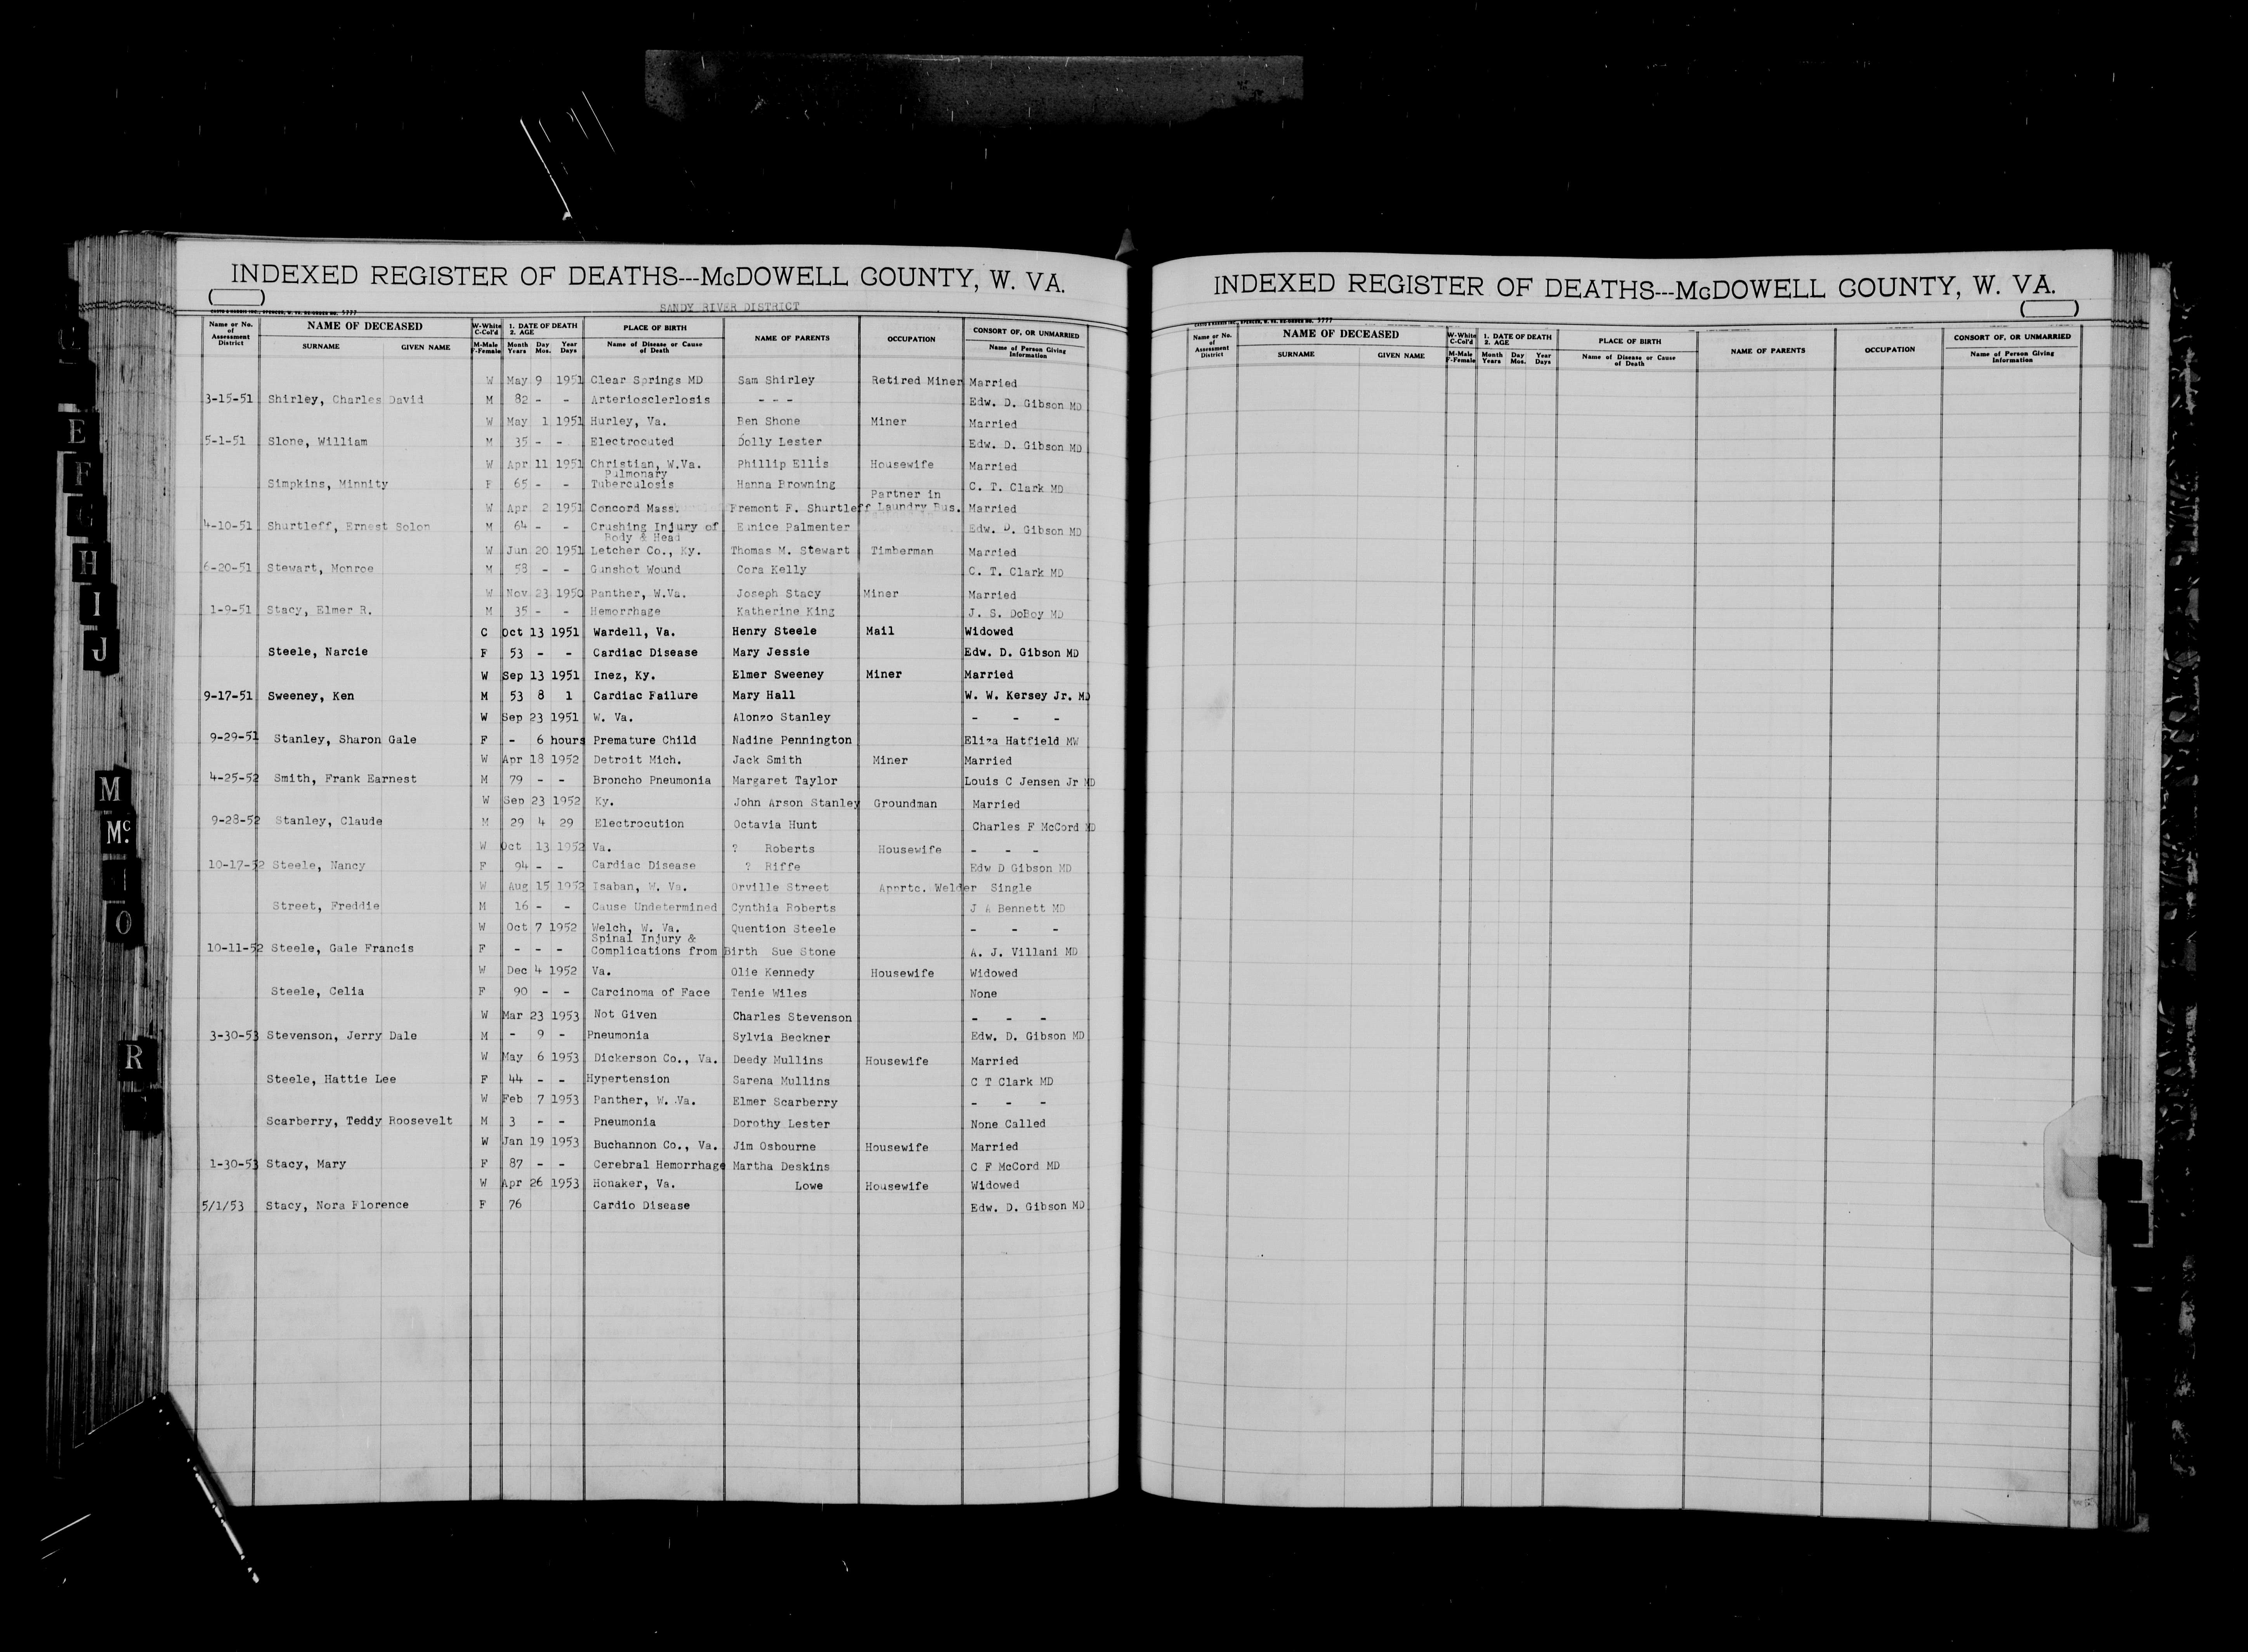 INDEXED REGISTER OF DEATHS---McDOWELL COUNTY, W. VA.
SANDY RIVER DISTRICT
Name or No. of Assessment District | NAME OF DECEASED SURNAME GIVEN NAME | W-White C-Col'd M-Male F-Female | 1. DATE OF DEATH 2. AGE Month Day Year Years Mos. Days | PLACE OF BIRTH Name of Disease or Cause of Death | NAME OF PARENTS | OCCUPATION | CONSORT OF, OR UNMARRIED Name of Person Giving Information
W May 9 1951 Clear Springs MD Sam Shirley Retired Miner Married
3-15-51 Shirley, Charles David M 82 - - Arteriosclerlosis - - - Edw. D. Gibson MD
W May 1 1951 Hurley, Va. Ben Shone Miner Married
5-1-51 Slone, William M 35 - - Electrocuted Dolly Lester Edw. D. Gibson MD
W Apr 11 1951 Christian, W.Va. Phillip Ellis Housewife Married
Pulmonary
Simpkins, Minnity F 65 - - Tuberculosis Hanna Browning C. T. Clark MD
Partner in
W Apr 2 1951 Concord Mass. Fremont F. Shurtleff Laundry Bus. Married
4-10-51 Shurtleff, Ernest Solon M 64 - - Crushing Injury of Eunice Palmenter Edw. D. Gibson MD
Body & Head
W Jun 20 1951 Letcher Co., Ky. Thomas M. Stewart Timberman Married
6-20-51 Stewart, Monroe M 58 - - Gunshot Wound Cora Kelly C. T. Clark MD
W Nov 23 1950 Panther, W.Va. Joseph Stacy Miner Married
1-9-51 Stacy, Elmer R. M 35 - - Hemorrhage Katherine King J. S. DoBoy MD
C Oct 13 1951 Wardell, Va. Henry Steele Mail Widowed
Steele, Narcie F 53 - - Cardiac Disease Mary Jessie Edw. D. Gibson MD
W Sep 13 1951 Inez, Ky. Elmer Sweeney Miner Married
9-17-51 Sweeney, Ken M 53 8 1 Cardiac Failure Mary Hall W. W. Kersey Jr. MD
W Sep 23 1951 W. Va. Alonzo Stanley - - -
9-29-51 Stanley, Sharon Gale F - 6 hours Premature Child Nadine Pennington Eliza Hatfield MW
W Apr 18 1952 Detroit Mich. Jack Smith Miner Married
4-25-52 Smith, Frank Earnest M 79 - - Broncho Pneumonia Margaret Taylor Louis C Jensen Jr MD
W Sep 23 1952 Ky. John Arson Stanley Groundman Married
9-28-52 Stanley, Claude M 29 4 29 Electrocution Octavia Hunt Charles F McCord MD
W Oct 13 1952 Va. ? Roberts Housewife - - -
10-17-52 Steele, Nancy F 94 - - Cardiac Disease ? Riffe Edw D Gibson MD
W Aug 15 1952 Isaban, W. Va. Orville Street Apprtc. Welder Single
Street, Freddie M 16 - - Cause Undetermined Cynthia Roberts J A Bennett MD
W Oct 7 1952 Welch, W. Va. Quention Steele - - -
Spinal Injury &
10-11-52 Steele, Gale Francis F - - - Complications from Birth Sue Stone A. J. Villani MD
W Dec 4 1952 Va. Olie Kennedy Housewife Widowed
Steele, Celia F 90 - - Carcinoma of Face Tenie Wiles None
W Mar 23 1953 Not Given Charles Stevenson - - -
3-30-53 Stevenson, Jerry Dale M - 9 - Pneumonia Sylvia Beckner Edw. D. Gibson MD
W May 6 1953 Dickerson Co., Va. Deedy Mullins Housewife Married
Steele, Hattie Lee F 44 - - Hypertension Sarena Mullins C T Clark MD
W Feb 7 1953 Panther, W. Va. Elmer Scarberry - - -
Scarberry, Teddy Roosevelt M 3 - - Pneumonia Dorothy Lester None Called
W Jan 19 1953 Buchannon Co., Va. Jim Osbourne Housewife Married
1-30-53 Stacy, Mary F 87 - - Cerebral Hemorrhage Martha Deskins C F McCord MD
W Apr 26 1953 Honaker, Va. Lowe Housewife Widowed
5/1/53 Stacy, Nora Florence F 76 Cardio Disease Edw. D. Gibson MD
E
F
H
I
J
M
Mc.
O
R
INDEXED REGISTER OF DEATHS---McDOWELL COUNTY, W. VA.
Name or No. of Assessment District | NAME OF DECEASED SURNAME GIVEN NAME | W-White C-Col'd M-Male F-Female | 1. DATE OF DEATH 2. AGE Month Day Year Years Mos. Days | PLACE OF BIRTH Name of Disease or Cause of Death | NAME OF PARENTS | OCCUPATION | CONSORT OF, OR UNMARRIED Name of Person Giving Information